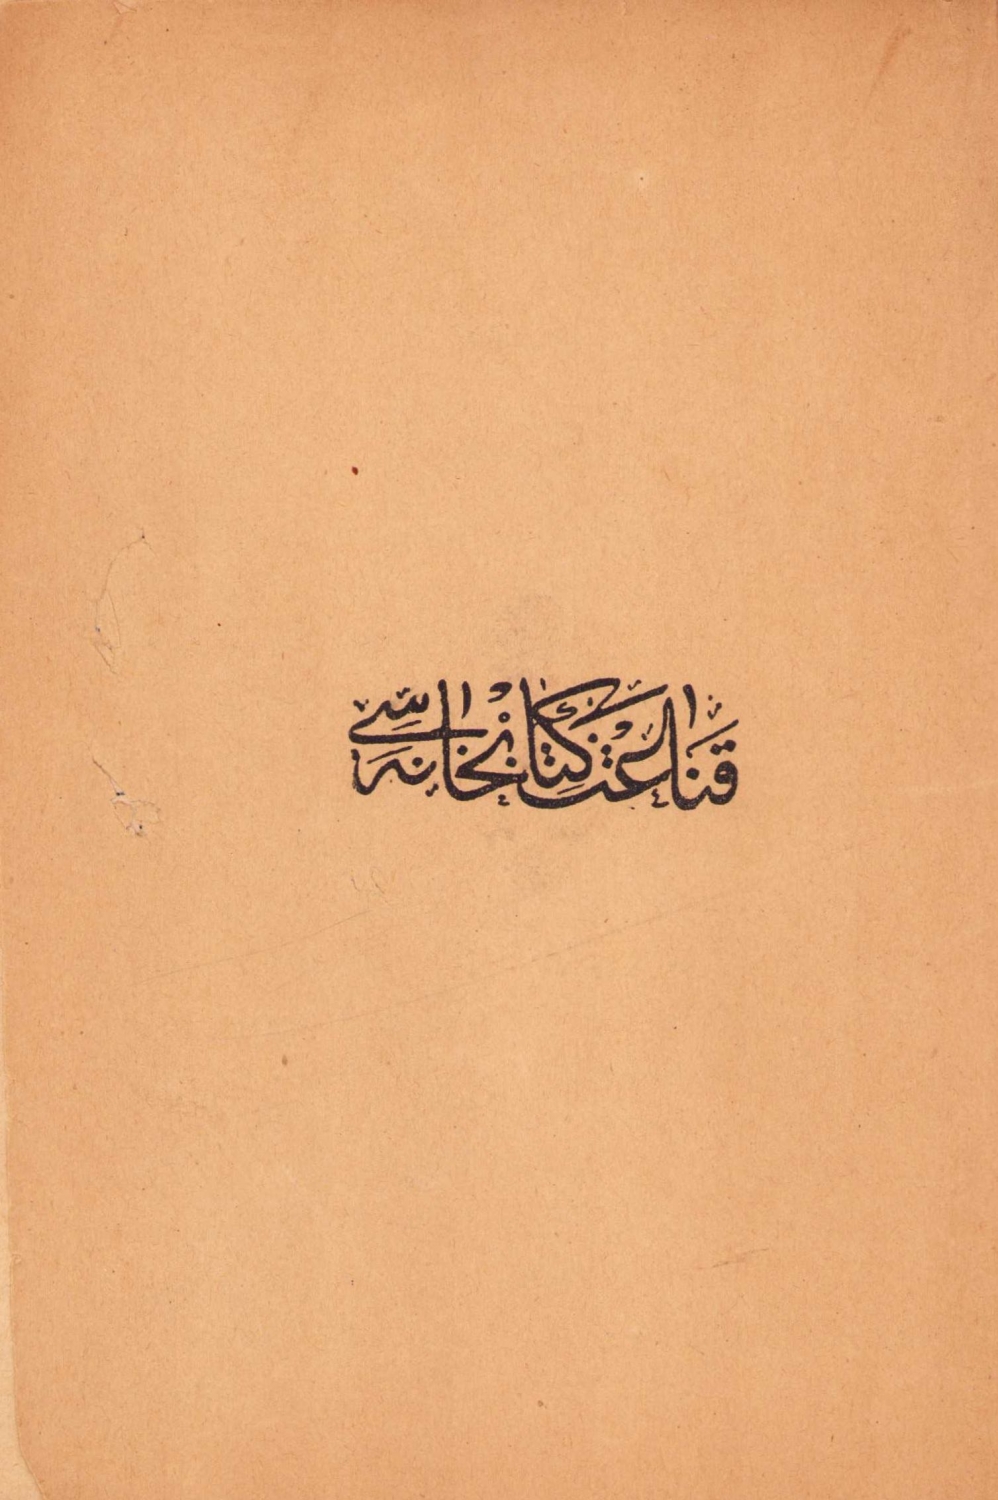 قناعت كتابخانه سی